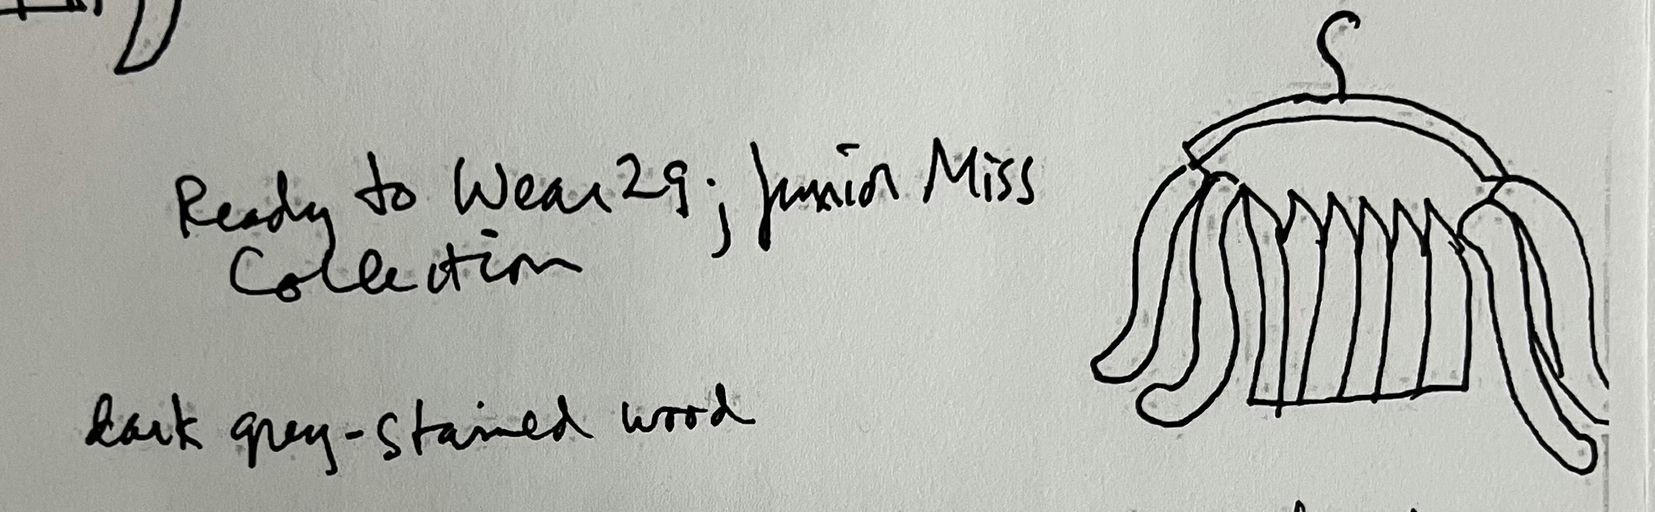 Ready to Wear 29; Junior Miss
Collection
dark grey-stained wood